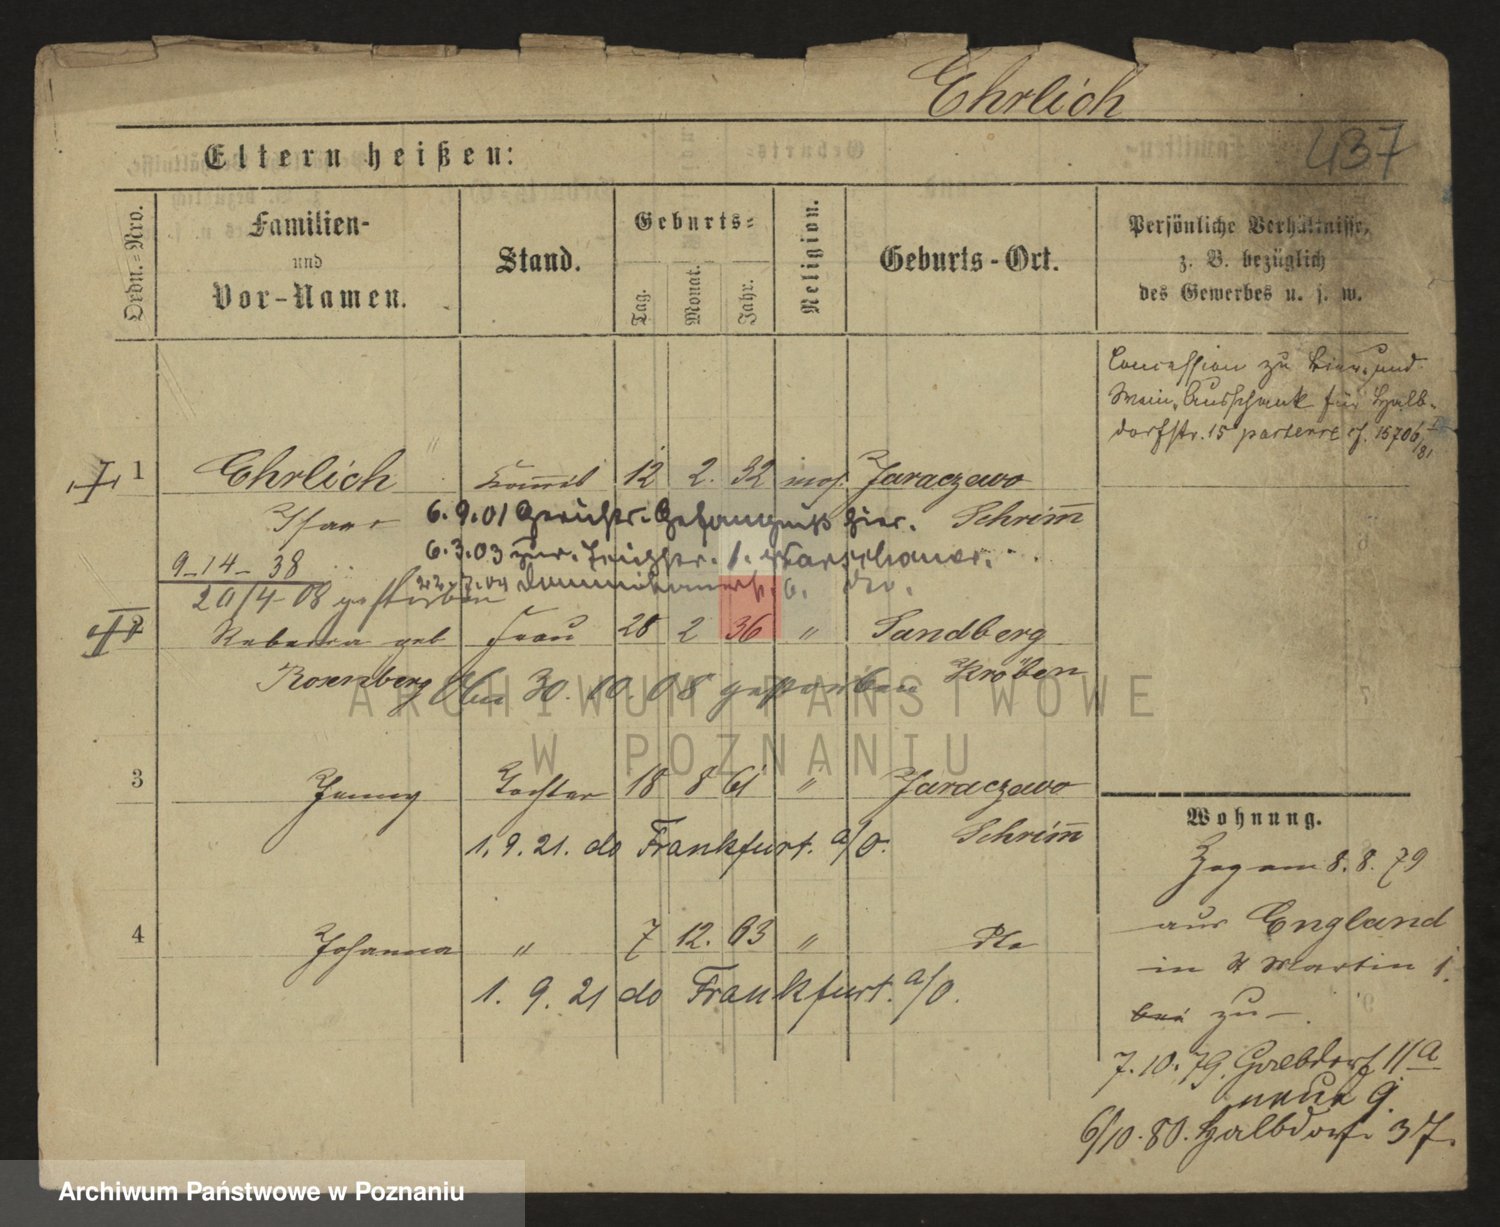 Ehrlich
437
Eltern heißen:
Ordn.=Nro.
Familien-
und
Vor-Namen.
Stand.
Geburts=
Tag.
Monat.
Jahr.
Religion.
Geburts-Ort.
Persönliche Verhältnisse,
z. B. bezüglich
des Gewerbes u. s. w.
Concession zu Bier- und
Wein-Ausschank für Halb-
dorfstr. 15 parterre cf. 15706/81
I 1 Ehrlich 12 2. 32 mos. Jaraczewo
6.9.01 Gerichts-Gefängniß hier. Schrim̅
6.3.03 zur. 1. Warschauer.
9-14-38
20/4-08 gestorben
22.7.04 Dominikanerstr. 6. do.
II 2 Rebecca geb Frau 28 2 36 " Sandberg
Rosenberg 30.10.08 gestorben Kröben
3 Jenny Tochter 18 8 61 " Jaraczewo
1.9.21. do Frankfurt. a/O. Schrim̅
4 Johanna " 7 12. 63 " dto
1. 9. 21 do Frankfurt. a/O.
Wohnung.
Zog am 8.8.79
aus England
in St Martin 1.
bei zu
7.10.79. Halbdorf 11a
neue 9.
6/10.80. Halbdorf. 37.
ARCHIWUM PAŃSTWOWE
W POZNANIU
Archiwum Państwowe w Poznaniu